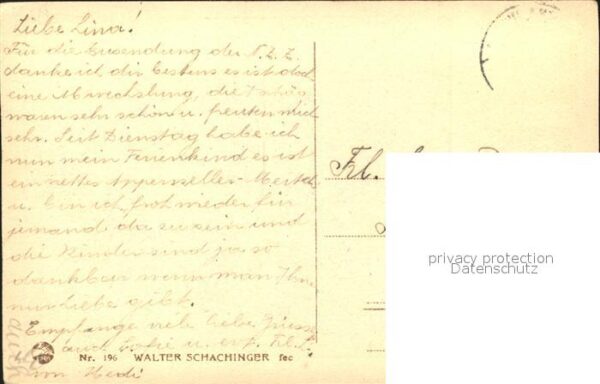 Liebe Lina!
Für die Zusendung der N.Z.Z.
danke ich dir bestens es ist doch
eine Abwechslung, die
waren sehr schön u. freuten mich
sehr. Seit Dienstag habe ich
nun mein Ferienkind es ist
ein nettes Appenzeller-Meitsch
u. bin ich froh wieder für
jemand da zu sein und
die Kinder sind ja so
dankbar wenn man Ihne
nur Liebe gibt.
Empfange viele liebe Grüsse
auch u.
Hedi
Frl.
Nr. 196 WALTER SCHACHINGER fec
privacy protection
Datenschutz